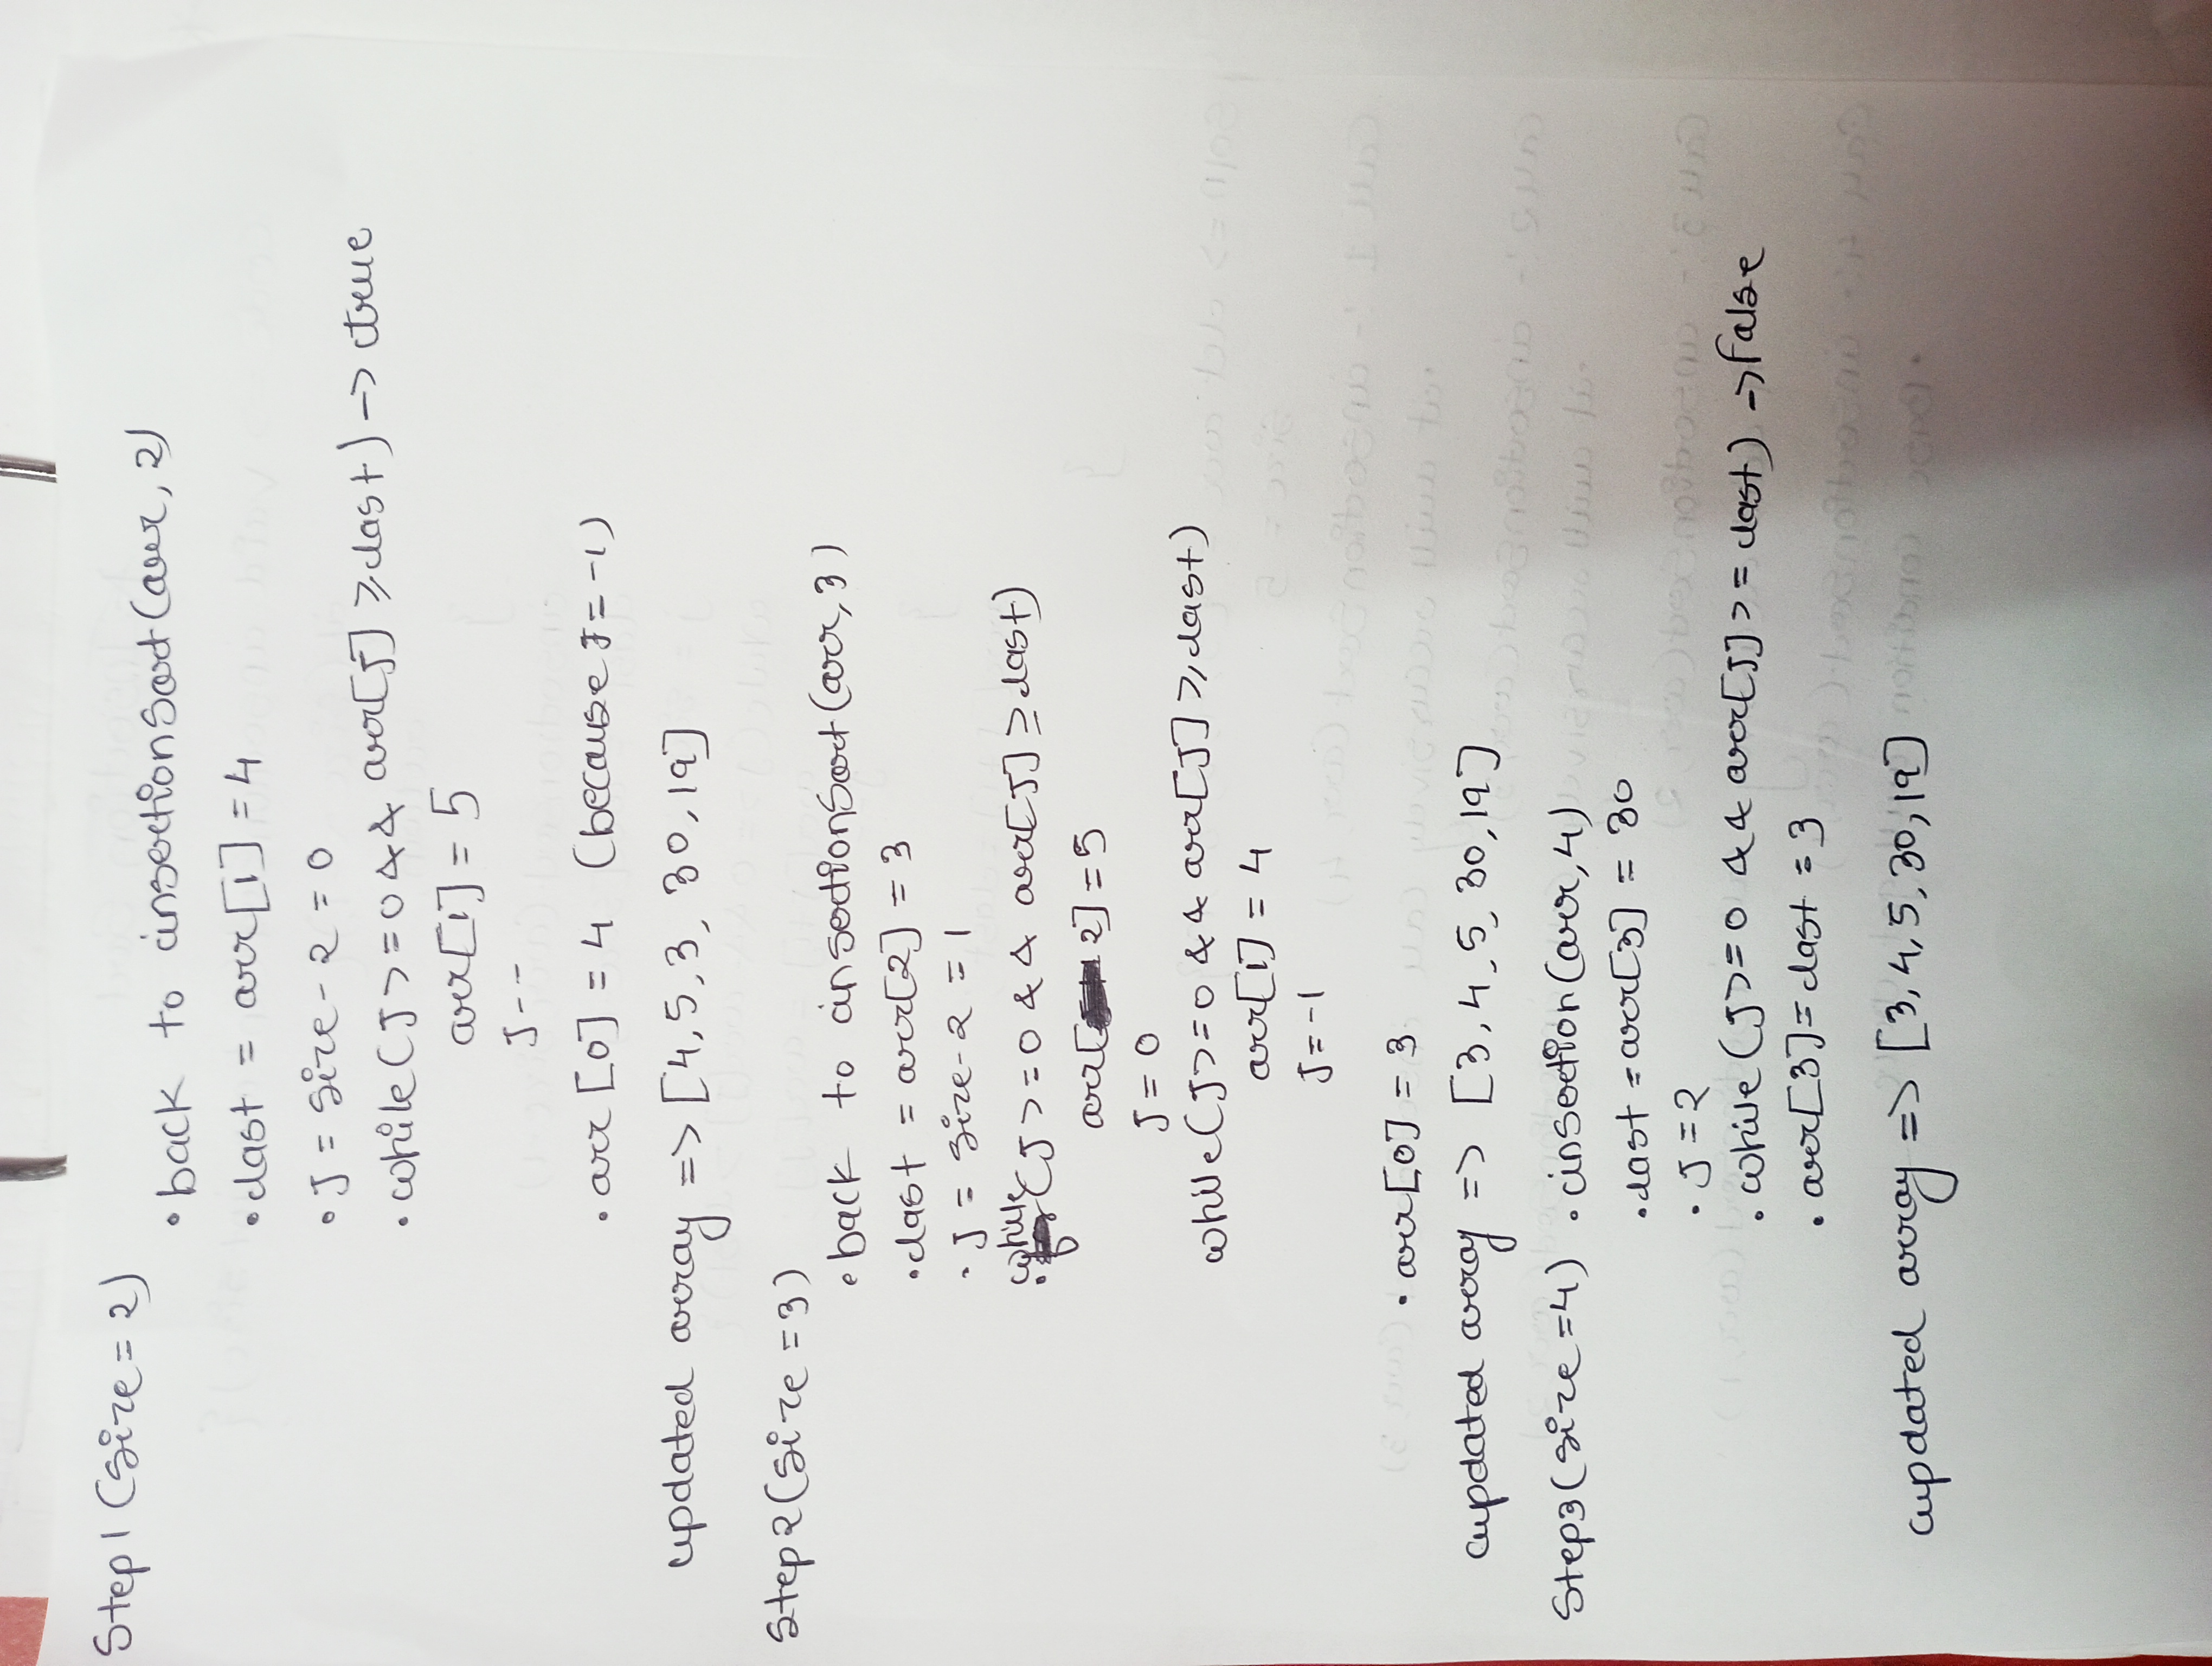 Step1 (size = 2)
• back to insertionSort(arr, 2)
• last = arr[1] = 4
• J = size - 2 = 0
• while (J >= 0 && arr[j] ≥ last) -> true
arr[1] = 5
J--
• arr [0] = 4 (because J = -1)
updated array => [4, 5, 3, 30, 19]
Step 2 (size = 3)
• back to insertionSort (arr, 3)
• last = arr[2] = 3
• J = size - 2 = 1
• while (J >= 0 && arr[J] ≥ last)
arr[2] = 5
J = 0
while (J >= 0 && arr[J] ≥ last)
arr[1] = 4
J = -1
• arr[0] = 3
updated array => [3, 4, 5, 30, 19]
Step3 (size = 4) • insertion (arr, 4)
• last = arr[3] = 30
• J = 2
• while (J >= 0 && arr[J] >= last) -> False
• arr[3] = last = 3
updated array => [3, 4, 5, 30, 19]